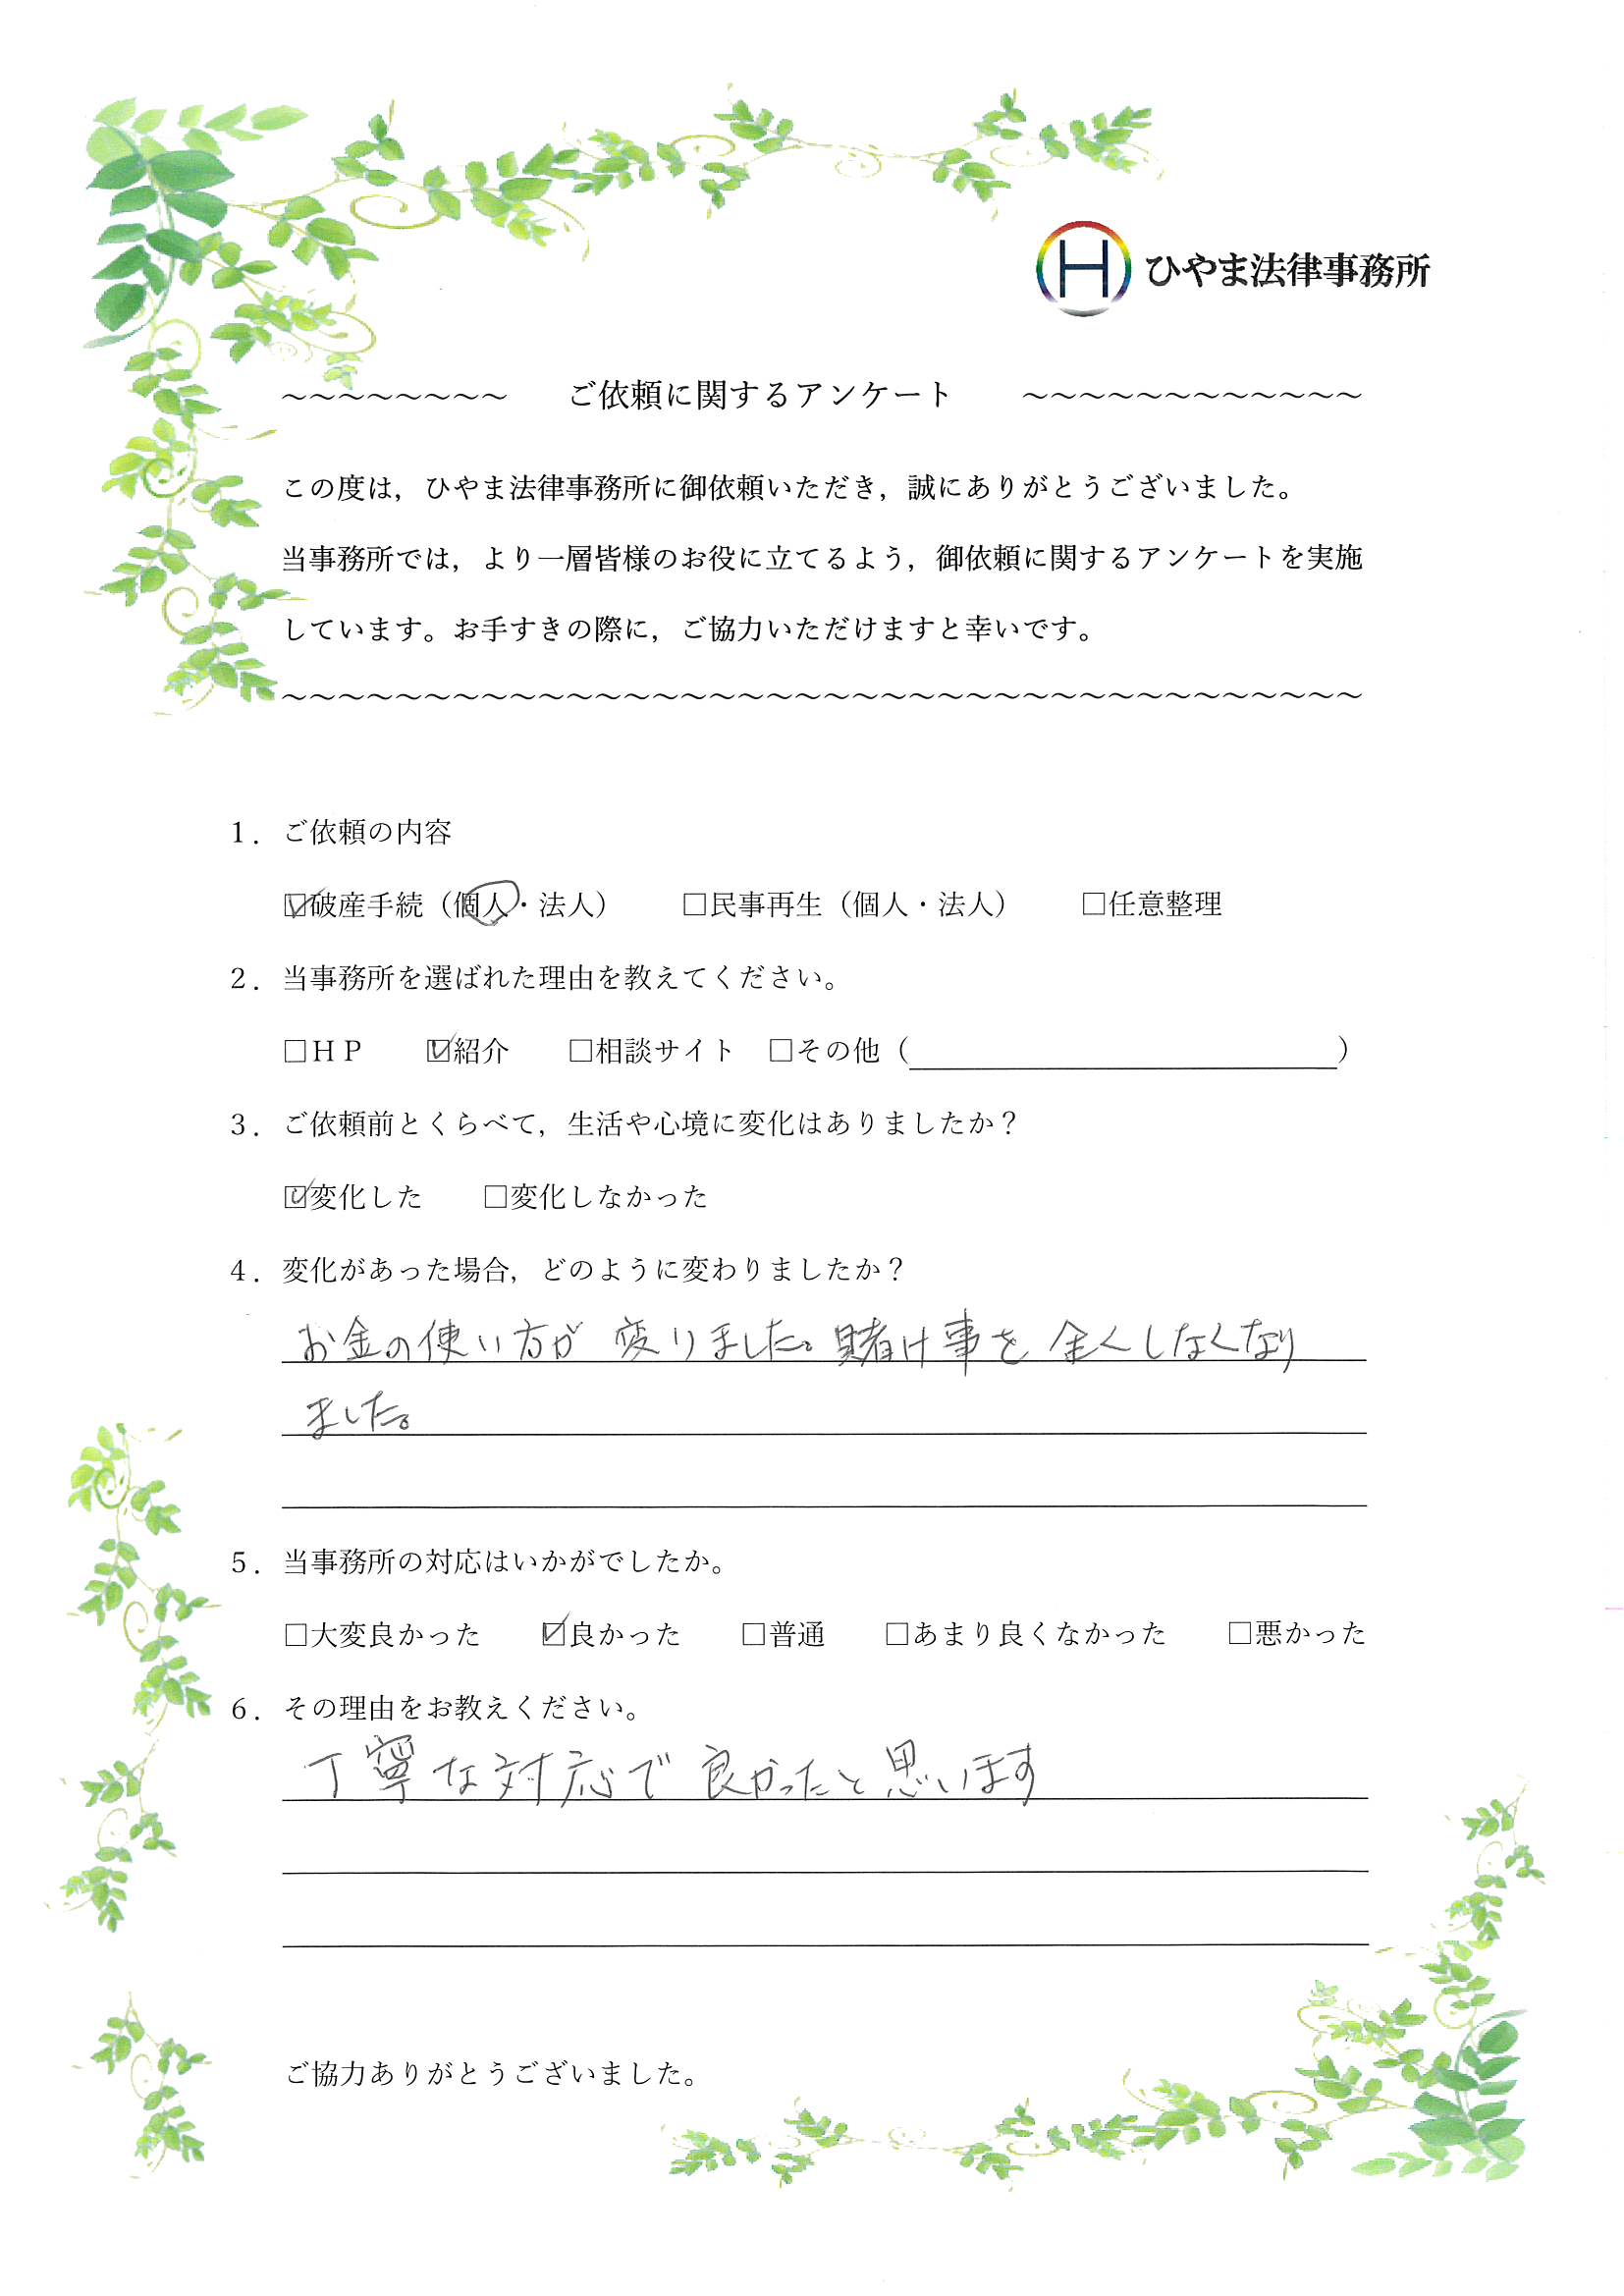 H ひやま法律事務所
～～～～～～～～ ご依頼に関するアンケート ～～～～～～～～～～～～
この度は，ひやま法律事務所に御依頼いただき，誠にありがとうございました。
当事務所では，より一層皆様のお役に立てるよう，御依頼に関するアンケートを実施
しています。お手すきの際に，ご協力いただけますと幸いです。
～～～～～～～～～～～～～～～～～～～～～～～～～～～～～～～～～～～～～～
１．ご依頼の内容
☑破産手続（個人・法人） □民事再生（個人・法人） □任意整理
２．当事務所を選ばれた理由を教えてください。
□ＨＰ ☑紹介 □相談サイト □その他（ ）
３．ご依頼前とくらべて，生活や心境に変化はありましたか？
☑変化した □変化しなかった
４．変化があった場合，どのように変わりましたか？
お金の使い方が変りました。賭け事を全くしなくなり
ました。
５．当事務所の対応はいかがでしたか。
□大変良かった ☑良かった □普通 □あまり良くなかった □悪かった
６．その理由をお教えください。
丁寧な対応で良かったと思います
ご協力ありがとうございました。